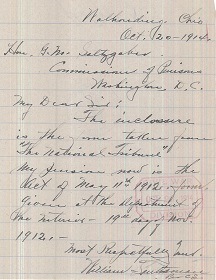 Walhonding, Ohio
Oct. 20 - 1914.
Hon. G. M. Saltzgaber
Commissioner of Pensions
Washington, D. C.
My Dear Sir:
The inclosure
is the one taken from
"The National Tribune"
My pension now is the
Act of May 11th 1912.
Given at the Department of
the Interior - 19th day Nov.
1912. -
Most Respectfully
William